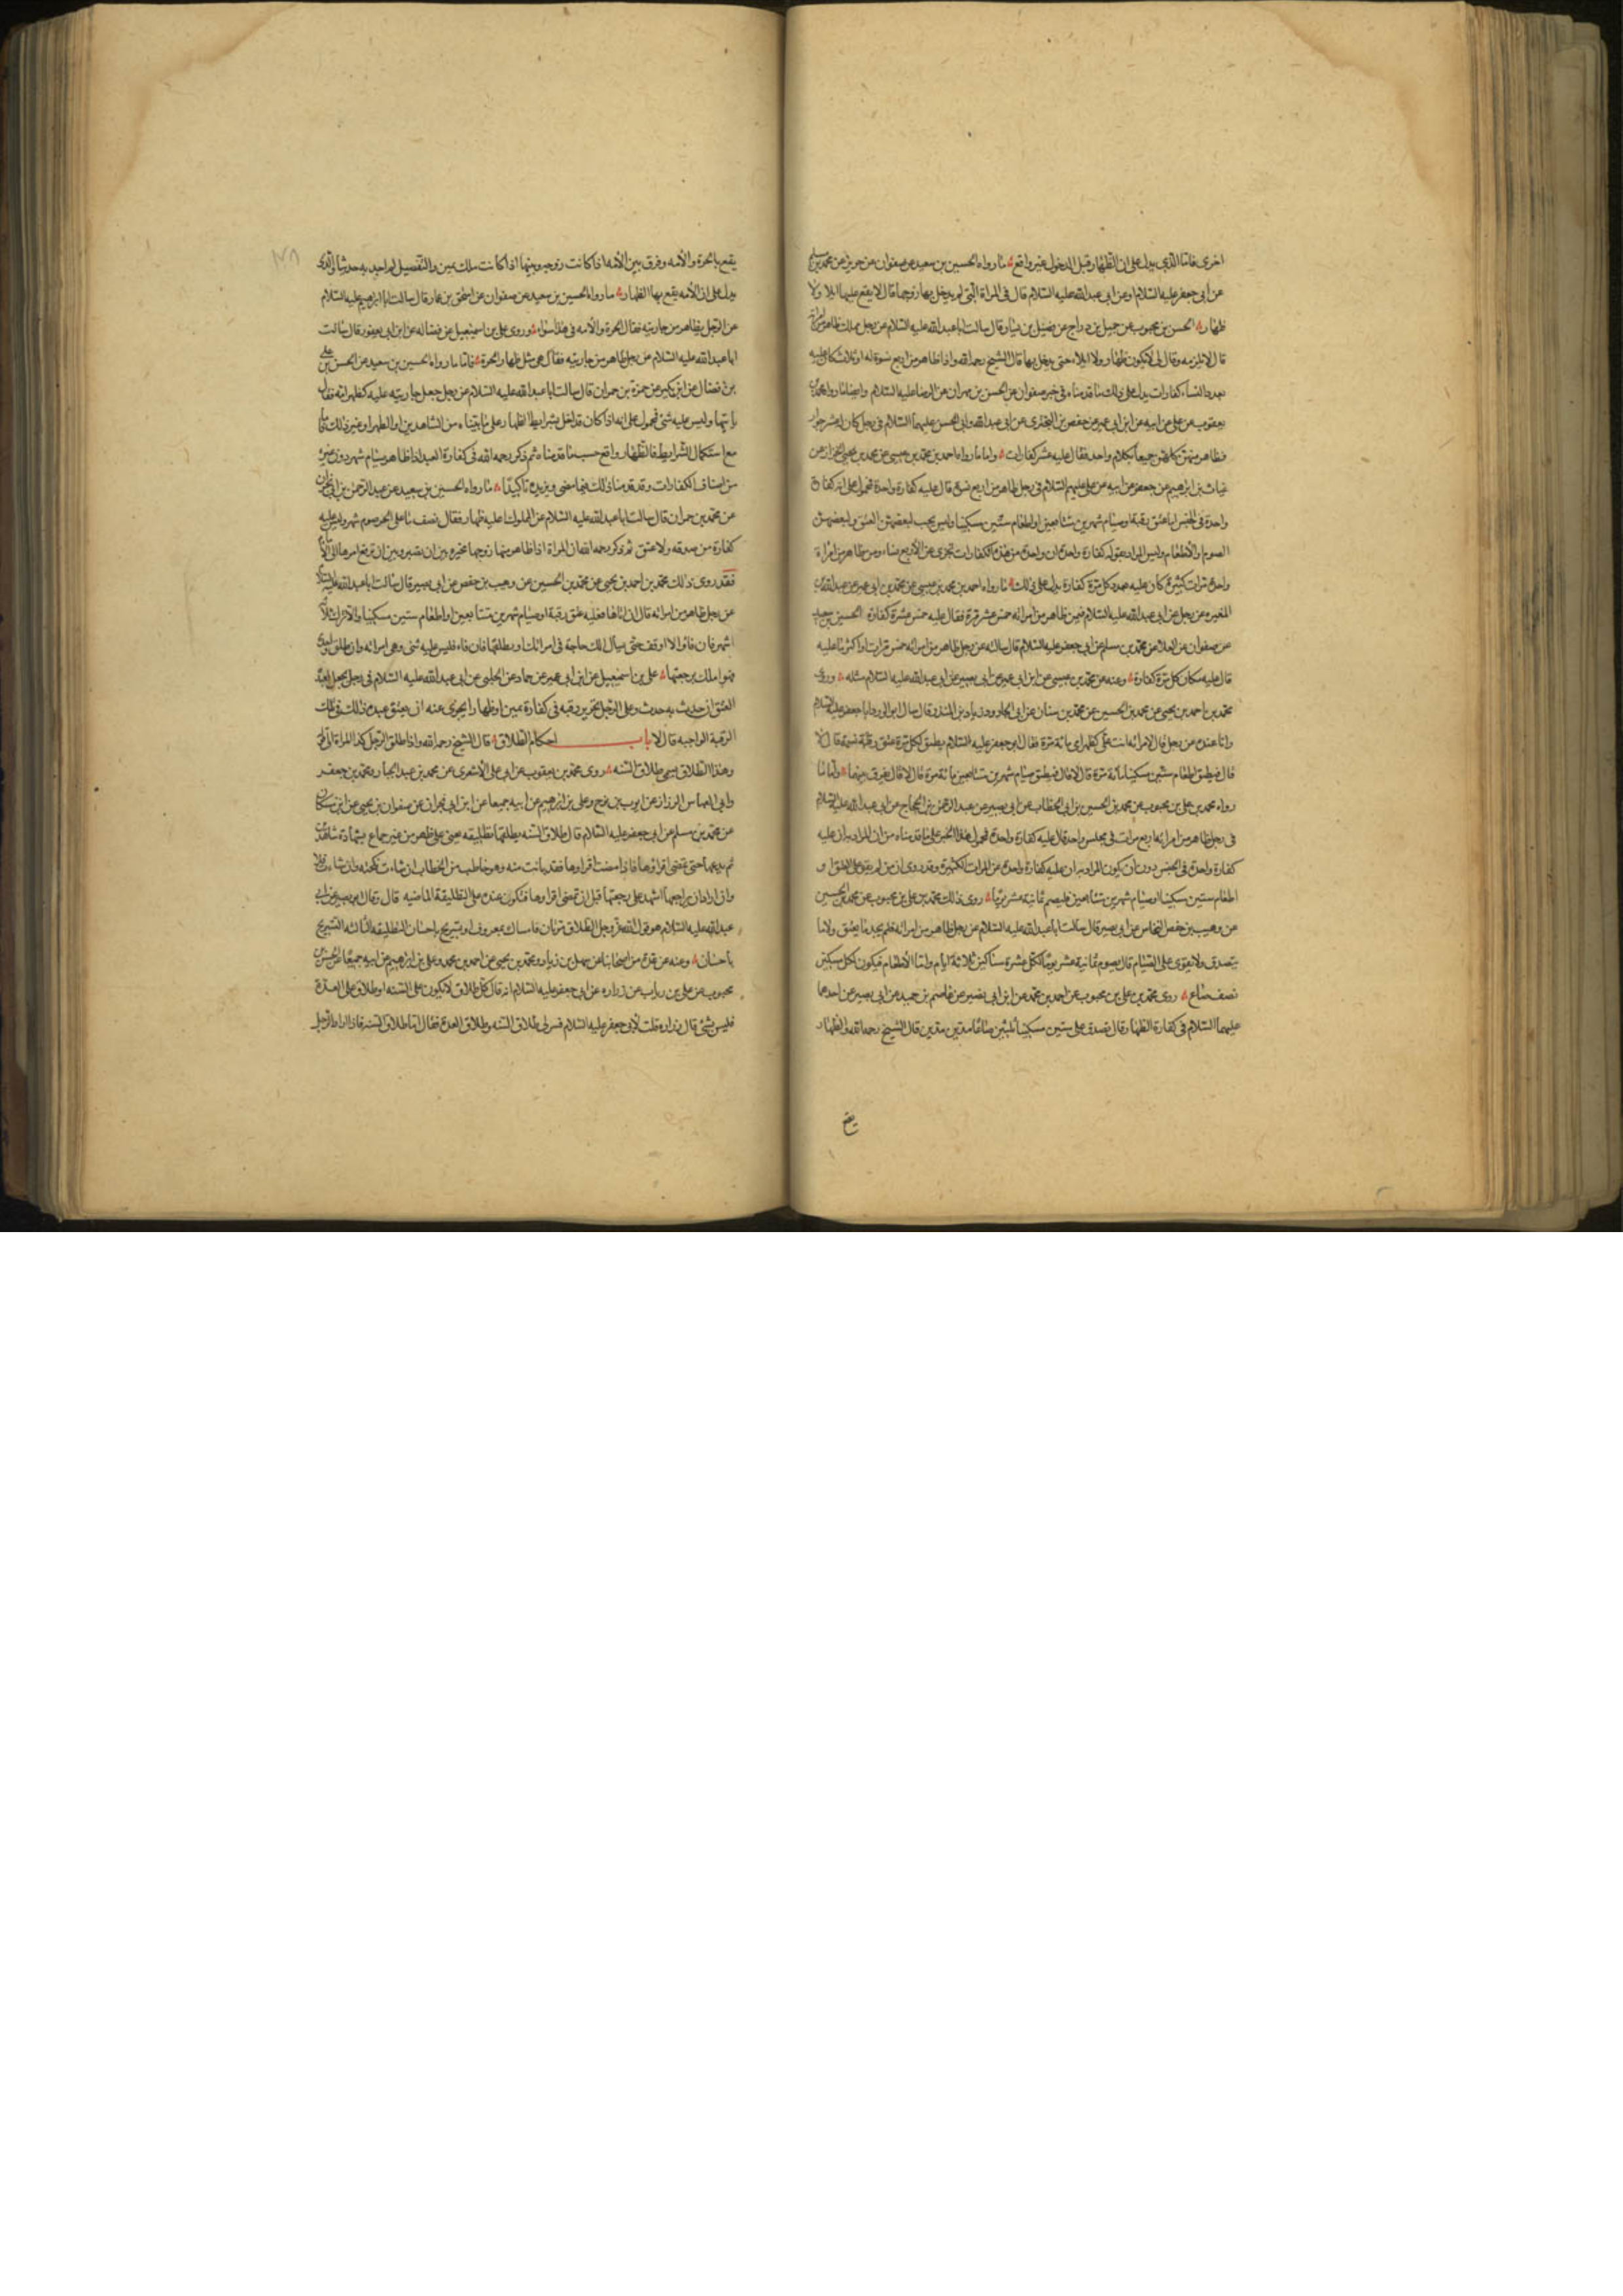 اخرى فاما الذي يدل على ان الظهار قبل الدخول غير واقع ما رواه الحسين بن سعيد عن صفوان عن حريز عن محمد بن مسلم
عن أبي جعفر عليه السلام او عن ابى عبد الله عليه السلام قال في المراة التي لم يدخل بها زوجها قال لا يقع عليها ايلا ولا
ظهار الحسن بن محبوب عن جميل بن دراج عن فضيل بن يسار قال سالت ابا عبد الله عليه السلام عن رجل مملك ظاهر من امراته
قال لا يلزمه وقال لى لا يكون ظهار ولا ايلاء حتى يدخل بها قال الشيخ رحمه الله واذا ظاهر من اربع نسوة له او ثلاث كان عليه
بعدد النساء كفارات يدل على ذلك ما قدمناه في خبر صفوان عن الحسين بن مهران عن الرضا عليه السلام وايضا ما رواه محمد بن
يعقوب عن على عن ابيه عن ابن ابي عمير عن حفص بن البختري عن ابى عبد الله وابى الحسن عليهما السلام في رجل كان له عشر جوار
فظاهر منهن كلهن جميعا بكلام واحد فقال عليه عشر كفارات واما ما رواه احمد بن محمد بن عيسى عن محمد بن يحيى الخزاز عن
غياث بن ابرهيم عن جعفر عن ابيه عن على عليهم السلام في رجل ظاهر من اربع نسوة قال عليه كفارة واحدة فمحمول على انه كفارة
واحدة في الجنس اما عتق رقبة او صيام شهرين متتابعين او اطعام ستين مسكينا وليس يجب لبعضهن العتق ولبعضهن
الصوم والاطعام وليس المراد بقوله كفارة واحدة ان واحدة من هذه الكفارات تجزى عن الاربع نساء ومن ظاهر من امراة
واحدة مرات كثيرة كان عليه بعدد كل مرة كفارة يدل على ذلك ما رواه احمد بن محمد بن عيسى عن محمد بن ابى عمير عن عبد الله بن
المغيره عن رجل عن ابى عبد الله عليه السلام فيمن ظاهر من امراته خمس عشر مرة فقال عليه خمس عشرة كفارة الحسين بن سعيد
عن صفوان عن العلا عن محمد بن مسلم عن ابى جعفر عليه السلام قال سالته عن رجل ظاهر من امراته خمس مرات او اكثر ما عليه
قال عليه مكان كل مرة كفارة وعنه عن محمد بن عيسى عن ابن ابى عمير عن ابى بصير عن ابى عبد الله عليه السلام مثله وروى
محمد بن احمد بن يحيى عن محمد بن الحسين عن محمد بن سنان عن ابى الجارود زياد بن المنذر قال سال ابو الورد ابا جعفر عليه السلام
وانا عنده عن رجل قال لامراته انت على كظهر امى مائة مرة فقال ابو جعفر عليه السلام يطيق لكل مرة عتق رقبة نسمة قال لا
قال فيطيق اطعام ستين مسكينا مائة مرة قال لا قال فيطيق صيام شهرين متتابعين مائة مرة قال لا قال يفرق بينهما واما ما
رواه محمد بن على بن محبوب عن محمد بن الحسين بن ابى الخطاب عن ابى بصير عن عبد الرحمن بن الحجاج عن ابى عبد الله عليه السلام
فى رجل ظاهر من امراته اربع مرات فى مجلس واحد قال عليه كفارة واحدة فمحول هذا الخبر على ما قدمناه من ان المراد به ان عليه
كفارة واحدة في الجنس دون ان يكون المراد به ان عليه كفارة واحدة عن المرات الكثيرة وقد روى ان من لم يقو على العتق او
اطعام ستين مسكينا او صيام شهرين متتابعين فليصم ثمانية عشر يوما روى ذلك محمد بن على بن محبوب عن محمد بن الحسين
عن وهيب بن حفص النخاس عن ابى بصير قال سالت ابا عبد الله عليه السلام عن رجل ظاهر من امراته فلم يجد ما يعتق ولا ما
يتصدق ولا يقوى على الصيام قال يصوم ثمانية عشر يوما لكل عشرة مساكين ثلاثة ايام واما الاطعام فيكون لكل مسكين
نصف صاع روى محمد بن على بن محبوب عن احمد بن محمد عن ابن ابى نصير عن عاصم بن حميد عن ابى بصير عن احدهما
عليهما السلام في كفارة الظهار قال تصدق على ستين مسكينا ثلثين صاعا مدين مدين قال الشيخ رحمه الله والظهار
يقع
يقع بالحرة والأمه وفرق بين الأمه اذا كانت زوجه وبينها اذا كانت ملك يمين والتفصيل لم اجد به حديثا والذى
يدل على ان الأمه يقع بها الظهار ما رواه الحسين بن سعيد عن صفوان عن اسحق بن عمار قال سالت ابا ابرهيم عليه السلام
عن الرجل يظاهر من جاريته فقال الحرة والأمه فى هذا سواء وروى على بن اسمعيل عن فضاله عن ابن ابى يعفور قال سالت
ابا عبد الله عليه السلام عن رجل ظاهر من جاريته فقال هى مثل ظهار الحرة فاما ما رواه الحسين بن سعيد عن الحسن بن على
بن فضال عن ابن بكير عن حمزة بن حمران قال سالت ابا عبد الله عليه السلام عن رجل جعل جاريته عليه كظهر امه فقال
ياتيها وليس عليه شئ فمحمول على انه اذا كان قد اخل بشرايط الظهار على ما بيناه من الشاهدين او الطهر او غير ذلك فاما
مع استكمال الشرايط فالظهار واقع حسب ما قدمناه ثم ذكر رحمه الله فى كفارة العبد اذا ظاهر صيام شهر دون غيره
من اصناف الكفارات وقد قدمنا ذلك فيما مضى ويزيده تاكيدا ما رواه الحسين بن سعيد عن عبد الرحمن بن ابى نجران
عن محمد بن حمران قال سالت ابا عبد الله عليه السلام عن المملوك اعليه ظهار فقال نصف ما على الحر صوم شهر وليس عليه
كفارة من صدقه ولا عتق ثم ذكر رحمه الله ان المراة اذا ظاهر منها زوجها مخيره بين ان تصبر وبين ان ترفع امرها الى الامام
فقد روى ذلك محمد بن احمد بن يحيى عن محمد بن الحسين عن وهيب بن حفص عن ابى بصير قال سالت ابا عبد الله عليه السلام
عن رجل ظاهر من امراته قال ان اتاها فعليه عتق رقبة او صيام شهرين متتابعين او اطعام ستين مسكينا والا ترك ثلاثة
اشهر فان فاء والا اوقف حتى يسال الك حاجة فى امراتك او تطلقها فان فاء فليس عليه شئ وهى امراته وان طلق واحدة
فهو املك برجعتها على بن اسمعيل عن ابن ابى عمير عن حماد عن الحلبى عن ابى عبد الله عليه السلام فى رجل يجعل لعبده
العتق ان حدث به حدث وعلى الرجل تحرير رقبه فى كفارة يمين او ظهار ايجزى عنه ان يعتق عبده ذلك فى تلك
الرقبة الواجبه قال لا باب احكام الطلاق قال الشيخ رحمه الله واذا طلق الرجل
وهذا الطلاق يسمى طلاق السنه روى محمد بن يعقوب عن ابى على الأشعرى عن محمد بن عبد الجبار ومحمد بن جعفر
وابى العباس الرزاز عن ايوب بن نوح وعلى بن ابرهيم عن ابيه جميعا عن ابن ابى نجران عن صفوان بن يحيى عن ابن مسكان
عن محمد بن مسلم عن ابى جعفر عليه السلام قال طلاق السنه يطلقها تطليقه يعنى على طهر من غير جماع بشهادة شاهدين
ثم يدعها حتى تمضى اقراؤها فاذا مضت اقراوها فقد بانت منه وهو خاطب من الخطاب ان شاءت نكحته وان شاءت فلا
وان اراد ان يراجعها اشهد على رجعتها قبل ان تمضى اقراوها فتكون عنده على التطليقة الماضيه قال وقال ابو بصير عن ابى
عبد الله عليه السلام هو قول الله عز وجل الطلاق مرتان فامساك بمعروف او تسريح باحسان التطليقه الثالثه التسريح
باحسان وعنه عن عدة من اصحابنا عن سهل بن زياد ومحمد بن يحيى عن احمد بن محمد وعلى بن ابرهيم عن ابيه جميعا عن الحسن بن
محبوب عن على بن رياب عن زراره عن ابى جعفر عليه السلام انه قال كل طلاق لا يكون على السنه او طلاق على العدة
فليس بشئ قال زراره قلت لابى جعفر عليه السلام فسر لى طلاق السنه وطلاق العدة فقال اما طلاق السنه فاذا اراد الرجل